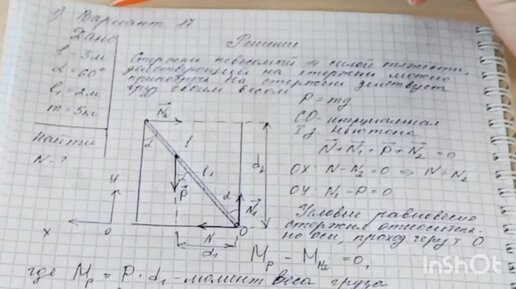 Вариант 17
Дано
l = 3м
α = 60°
l₁ = 2м
m = 5кг
Найти
N - ?
Решение
Стержень невесомый и силой тяжести,
действующей на стержень можно
На стержень действует
груз своим весом
P = mg
СО - инерциальная
Ньютона
N + N₁ + P + N₂ = 0
OX: N - N₂ = 0 ⇒ N = N₂
OY: N₁ - P = 0
Условие равновесия
стержня относитель-
но оси, проход через т. О
M_P - M_N₂ = 0,
где M_P = P · d₁ - момент веса груза
N₂
α
l
l₁
α
P
α
N₁
d₂
N
O
d₁
У
X
O
InShOt